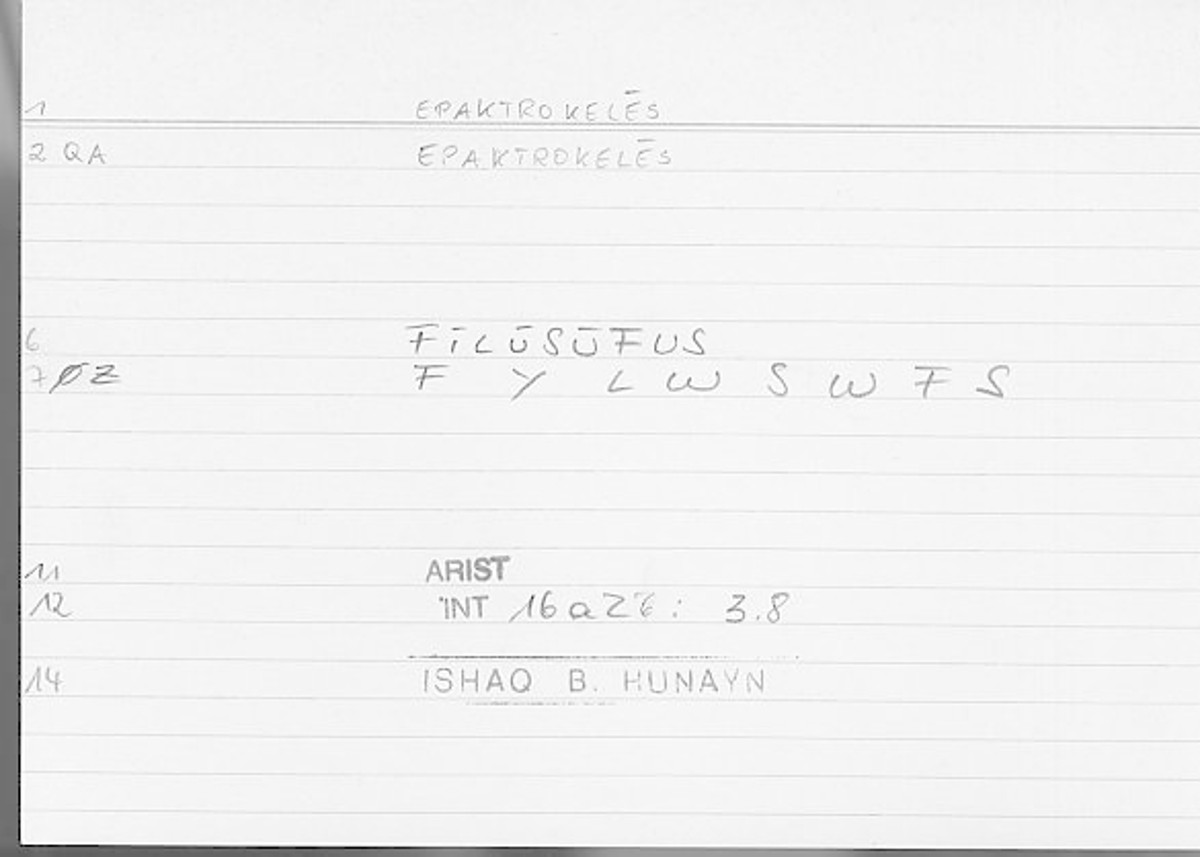 1 EPAKTROKELĒS
2 QA EPAKTROKELĒS
6 FĪLŪSŪFUS
7 ØZ F Y L W S W F S
11 ARIST
12 INT 16a26: 3.8
14 ISHAQ B. HUNAYN